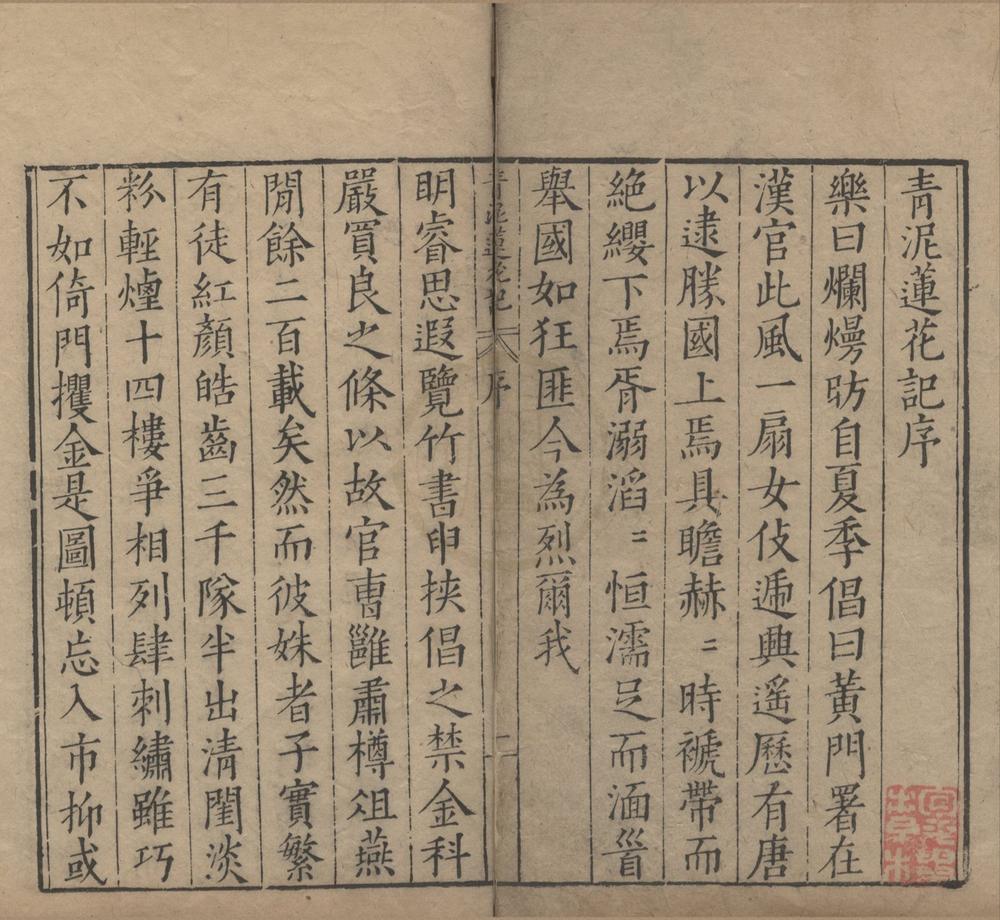 青泥蓮花記序
樂曰爛熳昉自夏季倡曰黃門署在
漢官此風一扇女伎遞興遙歷有唐
以逮勝國上焉具瞻赫〻時褫帶而
絕纓下焉胥溺滔〻恒濡足而湎首
舉國如狂匪今為烈爾我
青泥蓮花記 序 二
明睿思遐覽竹書申挾倡之禁金科
嚴買良之條以故官曹雖肅樽俎燕
閒餘二百載矣然而彼姝者子實繁
有徒紅顏皓齒三千隊半出淸閨淡
粉輕煙十四樓爭相列肆刺繡雖巧
不如倚門攫金是圖頓忘入市抑或